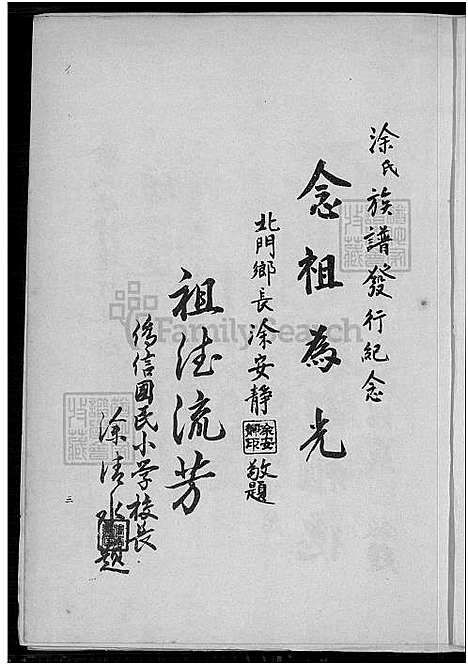 涂氏族譜發行紀念
念祖為光
北門鄉長涂安靜敬題
祖德流芳
僑信國民小学校長
涂清水題
三
FamilySearch